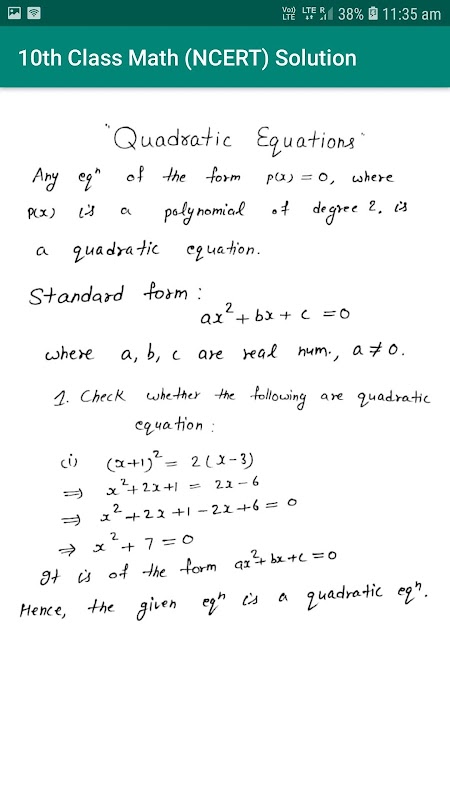 Vo) LTE LTE R 38% 11:35 am
10th Class Math (NCERT) Solution
"Quadratic Equations"
Any eqⁿ of the form p(x) = 0, where
p(x) is a polynomial of degree 2. is
a quadratic equation.
Standard form :
ax² + bx + c = 0
where a, b, c are real num., a ≠ 0.
1. Check whether the following are quadratic
equation :
(i) (x+1)² = 2(x-3)
⇒ x² + 2x + 1 = 2x - 6
⇒ x² + 2x + 1 - 2x + 6 = 0
⇒ x² + 7 = 0
It is of the form ax² + bx + c = 0
Hence, the given eqⁿ is a quadratic eqⁿ.